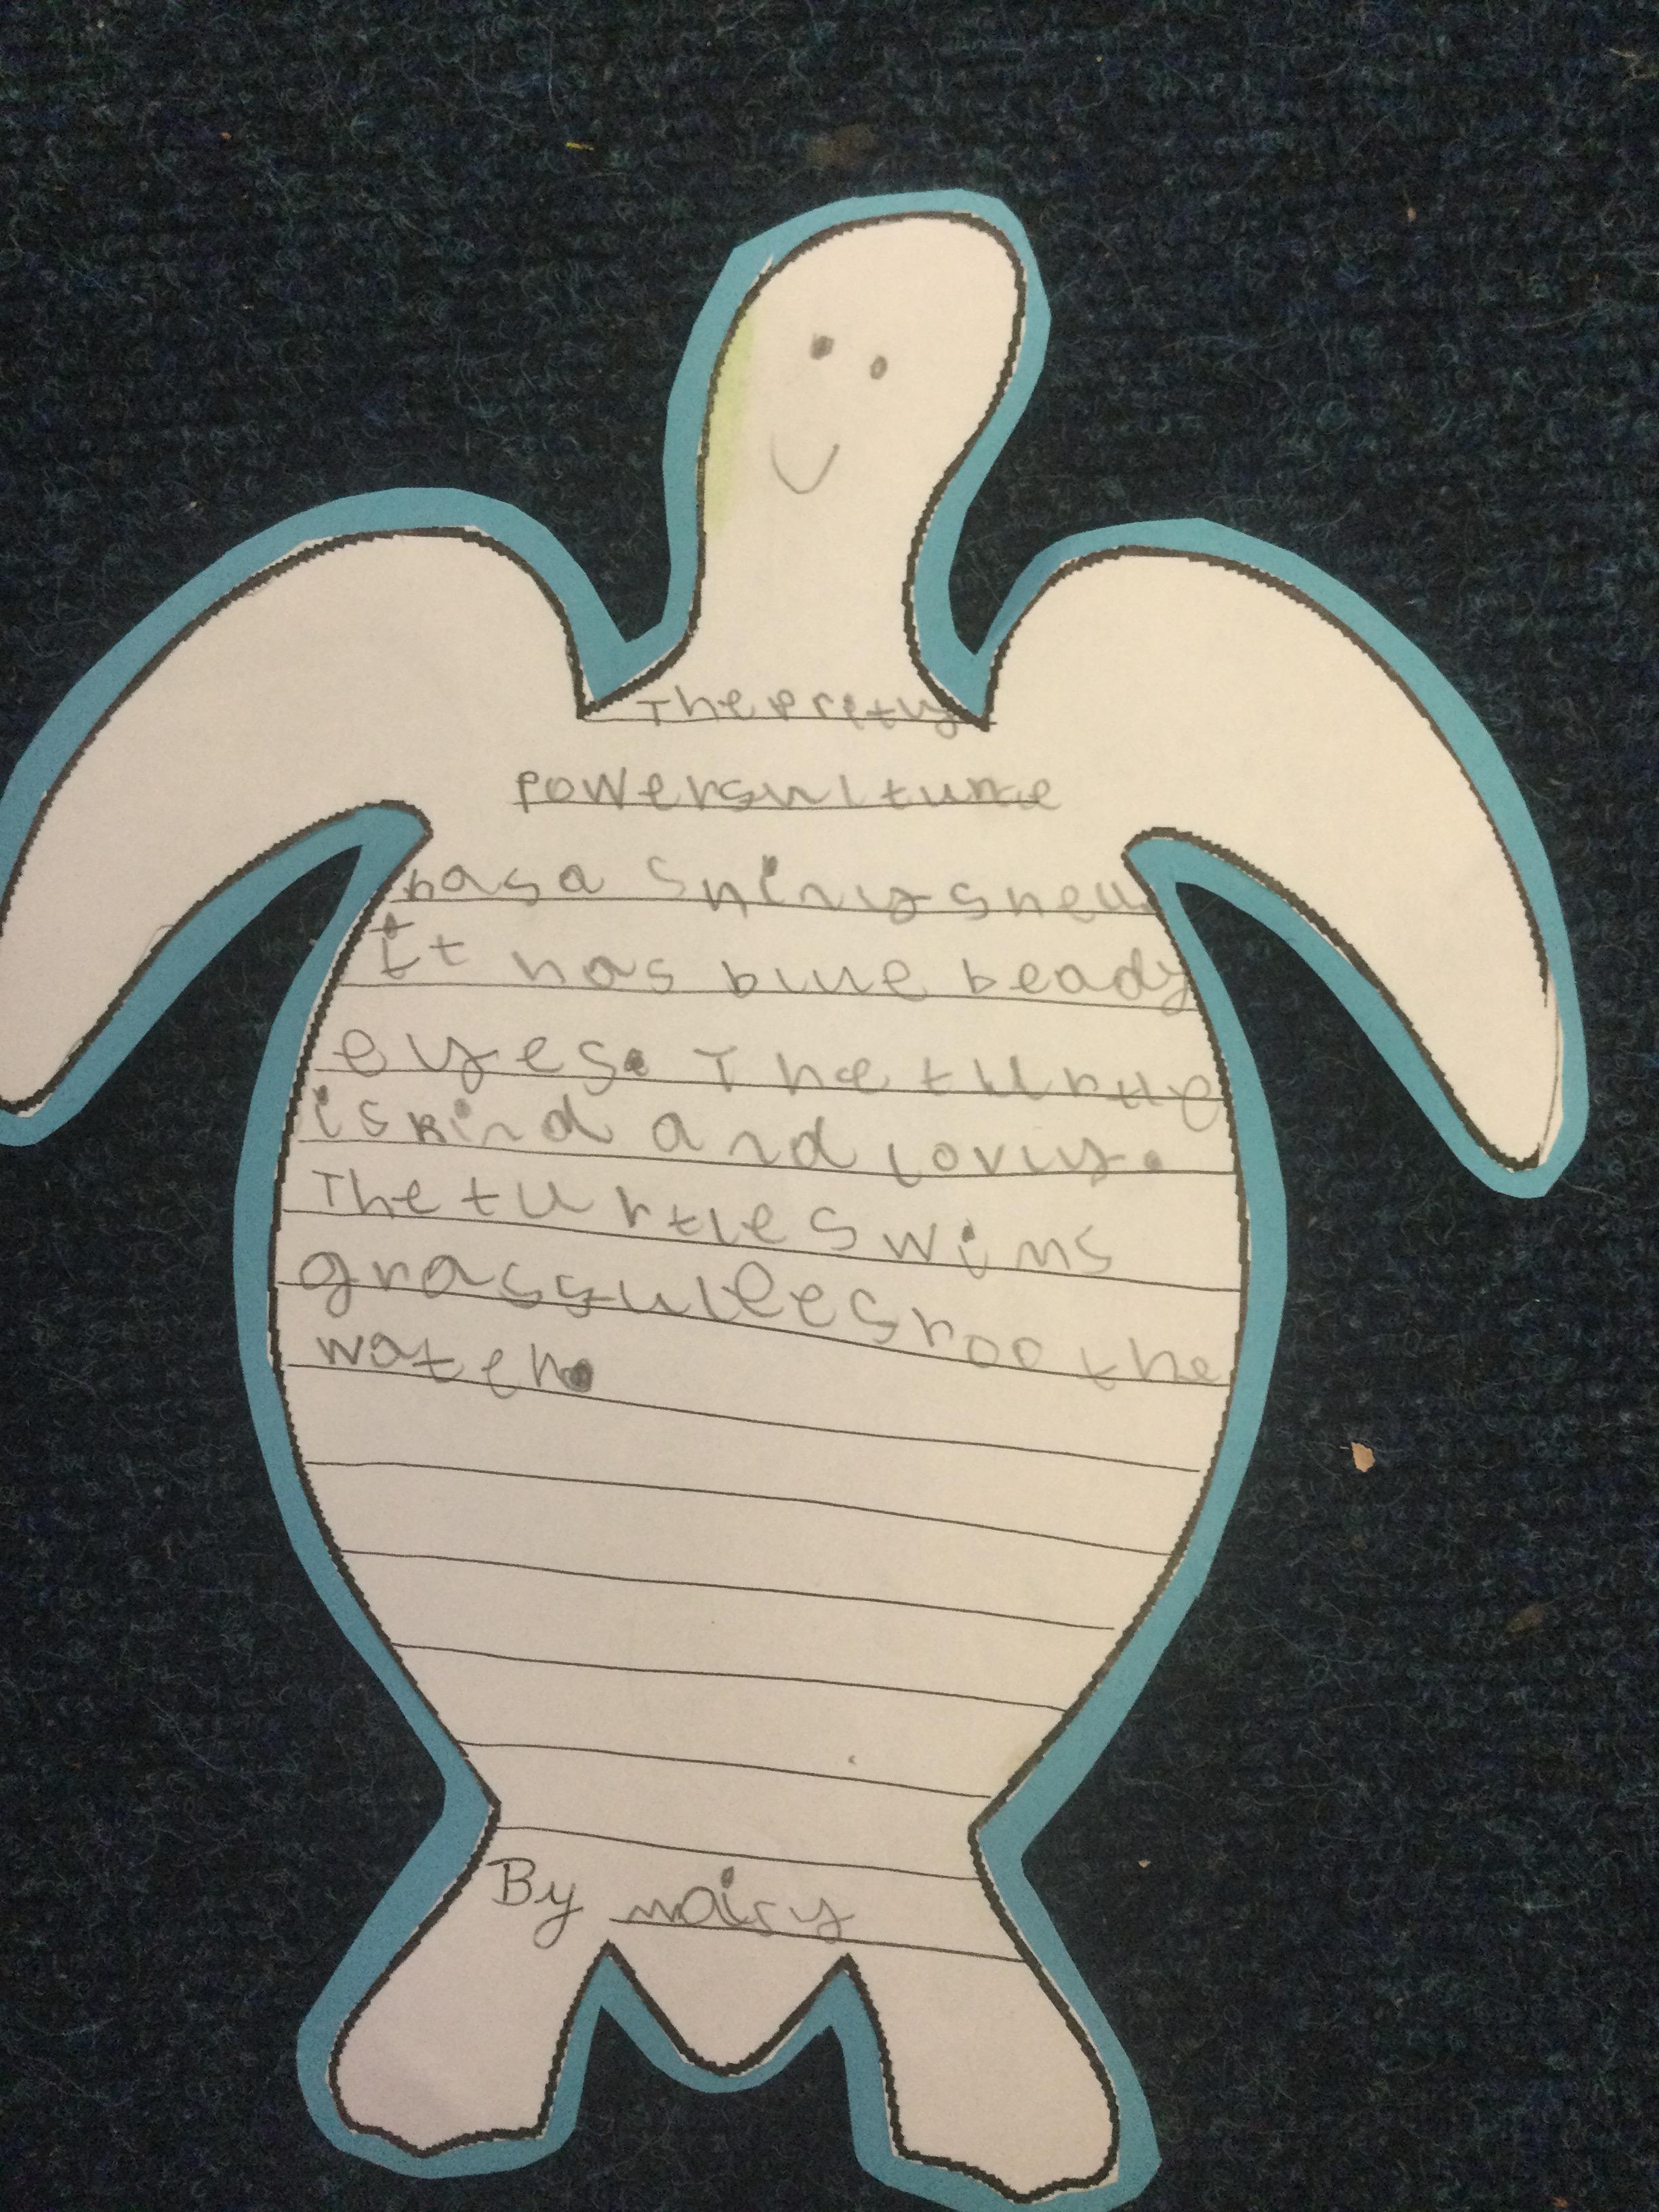 The prity
powersul turtle
has a shiny shell
It has blue beady
eyes. The turtle
is kind and lovly.
The turtle swims
grassulee sroo the
water.
By maisy